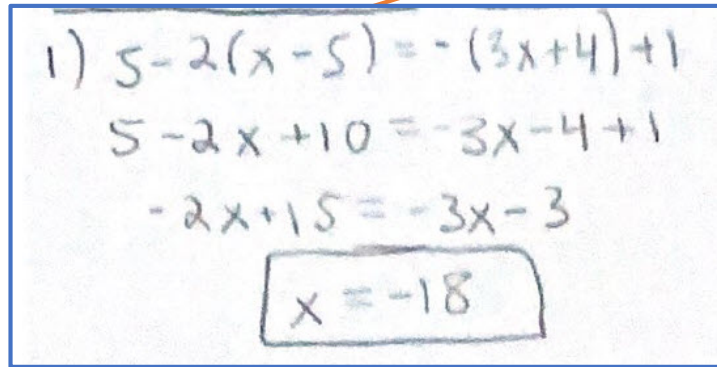 1) 5-2(x-5) = -(3x+4)+1
5-2x+10 = -3x-4+1
-2x+15 = -3x-3
x = -18